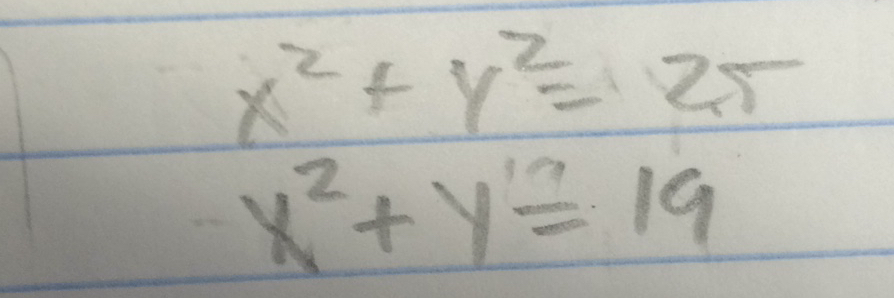 x² + y² = 25
x² + y = 19